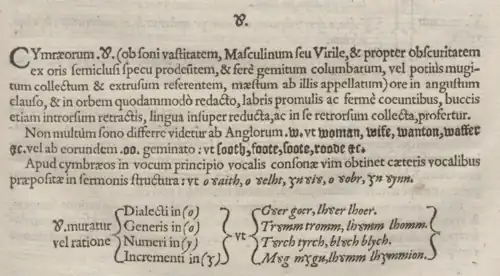 ꞷ.
CYmræorum. ꞷ. (ob soni vastitatem, Masculinum seu Virile, & propter obscuritatem
ex oris semiclusi specu prodeūtem, & ferè gemitum columbarum, vel potiùs mugi-
tum collectum & extrusum referentem, mæstum ab illis appellatum) ore in angustum
clauso, & in orbem quodammodò redacto, labris promulis ac fermè coeuntibus, buccis
etiam introrsum retractis, lingua insuper reducta, ac in se retrorsum collecta, profertur.
Non multùm sono differre videtur ab Anglorum .w. vt woman, wife, wanton, waffer
&c. vel ab eorundem .oo. geminato : vt sooth, foote, soote, roode &c.
Apud cymbræos in vocum principio vocalis consonæ vim obtinet cæteris vocalibus
præposita in sermonis structura : vt
ꞷ. mutatur
vel ratione
Dialecti in (o)
Generis in (o)
Numeri in (y)
Incrementi in (ʒ)
vt
Gꞷer goer, lhꞷer lhoer.
Trꞷmm tromm, lhꞷmm lhomm.
Tꞷrch tyrch, blꞷch blych.